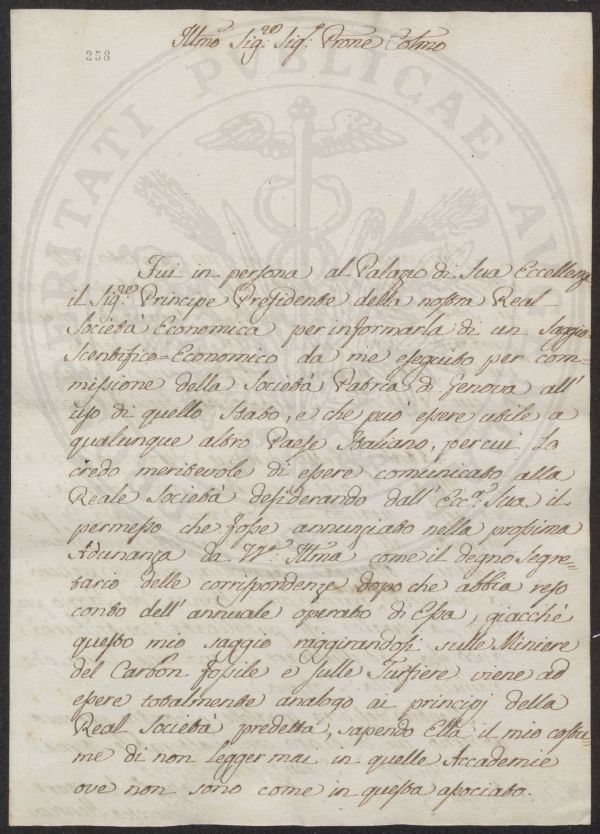 Illmo Sig.re Sig.r Prone Colmo
258
VERITATI PUBLICAE
Fui in persona al Palazio di Sua Eccellenza
il Sig.re Principe Presidente della nostra Real
Società Economica per informarla di un Saggio
Scentifico-Economico da me eseguito per com=
missione della Società Patria di Genova all'
uso di quello Stato, e che può essere utile a
qualunque altro Paese Italiano, per cui lo
credo meritevole di essere comunicato alla
Reale Società desiderando dall' Ecc.za Sua il
permesso che fosse annunziato nella prossima
Adunanza da V.S. Illma come il degno Segre=
tario delle corrispondenze dopo che abbia reso
conto dell' annuale operato di Essa, giacchè
questo mio saggio raggirandosi sulle Miniere
del Carbon fossile e sulle Turfiere viene ad
essere totalmente analogo ai principj della
Real Società predetta, sapendo Ella il mio costu=
me di non legger mai in quelle Accademie
ove non sono come in questa associato.